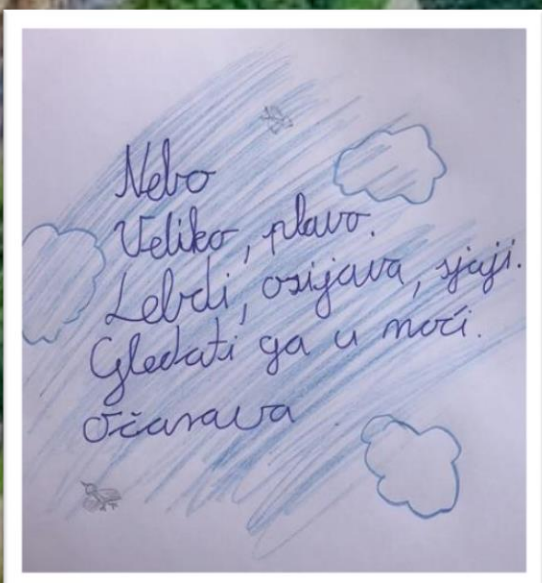 Nebo
Veliko, plavo.
Lebdi, osijava, sjaji.
Gledati ga u noći.
Očarava